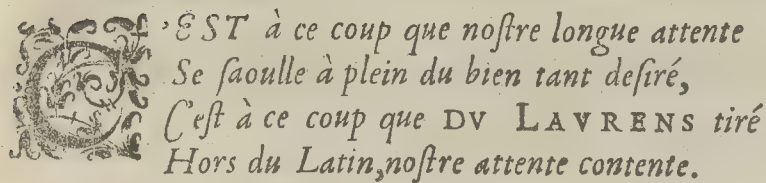 C'EST à ce coup que noſtre longue attente
Se ſaoulle à plein du bien tant deſiré,
C'eſt à ce coup que DV LAVRENS tiré
Hors du Latin, noſtre attente contente.